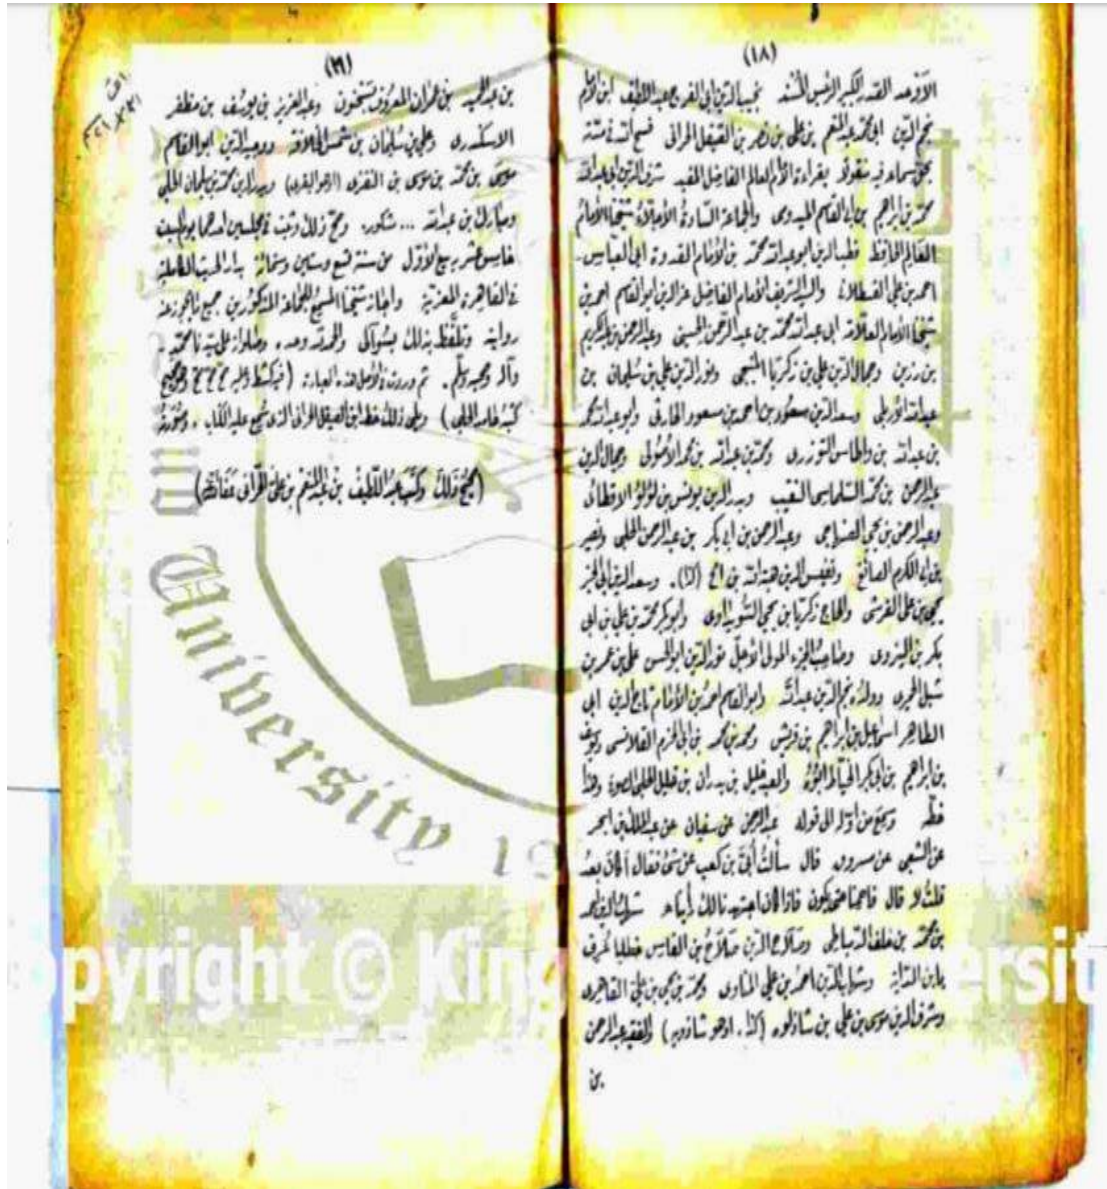 (١٨)
الأوحد الصدر الكبير الرئيس المسند نجيب الدين ابي الفرج عبد اللطيف ابن الامام
نجم الدين ابي محمد عبد المنعم بن علي بن نصر بن الصيقل الحراني فسح الله في مدته
بحق سماعه فيه بقراءة الامام العالم الفاضل المفيد شرف الدين ابي عبد الله
محمد بن ابراهيم بن ابي القاسم الميدومي والجماعة السادة الأجلاء شيخنا الأمام
العالم الحافظ قطب الدين ابو عبد الله محمد بن الأمام القدوة ابي العباس
احمد بن علي القسطلاني والسيد الشريف الأمام الفاضل عز الدين ابو القاسم احمد بن
شيخنا الأمام العلامة ابي عبد الله محمد بن عبد الرحمن الحسيني وعبد الرحمن بن عبد الكريم
بن رزين وجمال الدين علي بن زكريا المنبجي ونور الدين علي بن سليمان بن
عبد الله الاربلي وسعد الدين مسعود بن احمد بن مسعود الحارثي وابو عبد الله محمد
بن عبد الله بن التوزري ومحمد بن عبد الله بن محمد وجمال الدين
عبد الرحمن بن محمد السلماسي النقيب وبدر الدين يونس بن لؤلؤ
وعبد الرحمن بن يحيى وعبد الرحمن بن ابي بكر بن عبد الرحمن الحلبي
بن ابي الكرم الصائغ ونفيس الدين هبة الله بن (كذا). وسعد الدين
يحيى بن علي القرشي والحاج زكريا بن يحيى السويداوي وابو بكر محمد بن علي بن ابي
بكر بن وصاحب الجزء المولى الأجل نور الدين ابو الحسن علي بن عمر بن
شبل الحميري وولده نجم الدين عبد الله وابو القاسم احمد بن الأمام تاج الدين ابي
الطاهر اسماعيل بن ابراهيم بن قريش ومحمد بن محمد بن ابي الحزم القلانسي
بن ابراهيم بن ابي بكر الخياط والعبد خليل بن بدران بن خليل الحلبي وهذا
خطه وسمع من اوله الى قوله عبد الرحمن عن سفيان عن عبد الملك بن ابجر
عن الشعبي عن مسروق قال سألت أبي بن كعب عن شئ فقال أكان بعد
قلت لا قال فأجمنا حتى يكون فاذا كان اجتهدنا لك رأينا. شهاب الدين احمد
بن محمد بن خلف الدمياطي وصلاح الدين صلاح بن
بابن وشهاب الدين احمد بن علي المناوي ومحمد بن يحيى بن علي القاهري
وشرف الدين موسى بن علي بن (كذا، او هو) والفقيه عبد الرحمن
بن
(١٩)
بن عبد الحميد بن المعروف بشيخون وعبد العزيز بن يوسف بن مظفر
الاسكندري وعلي بن سليمان بن شمس الخلافة ووجيه الدين ابو القاسم
موسى بن محمد بن موسى بن النفزي (او هو) وبدر الدين محمد بن سليمان الحلبي
ومبارك بن عبد الله ... شكور. وصح ذلك وثبت في مجلسين احدهما يوم السبت
خامس عشر ربيع الأول من سنة تسع وستين وستمائة بدار الحديث الكاملية
في القاهرة المعزية واجاز شيخنا المسمع للجماعة المذكورين جميع ما يجوز عنه
روايته وتلفظ بذلك بسؤالي والحمد لله وحده وصلواته على سيدنا محمد
وآله وصحبه وسلم. ثم وردت في الأصل هذه العبارة
كتبه الحلبي) ويلي ذلك خط ابن الصيقل الحراني الذي سمع عليه الكتاب، وصورته
(صحيح ذلك وكتب عبد اللطيف بن عبد المنعم بن علي الحراني عفا الله عنهم)
University 19
Copyright © King